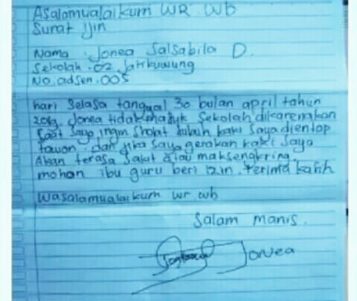 Asalomualaikum WR. Wb
Surat ijin
Nama : Jonea Salsabila D.
Sekolah : 02 Jatikuwung
No. adsen : 005
hari Selasa tangual 30 bulan april tahun
2019 Jonea tidak masuk Sekolah dikarenakan
Saat Saya ingin Sholat kaki Saya dientop
tawon dan jika Saya gerakan kaki Saya
Akan terasa Sakit atau
mohan ibu guru beri izin. terima kasih
Wasalamualaikum wr wb
Salam Manis.
Jonea